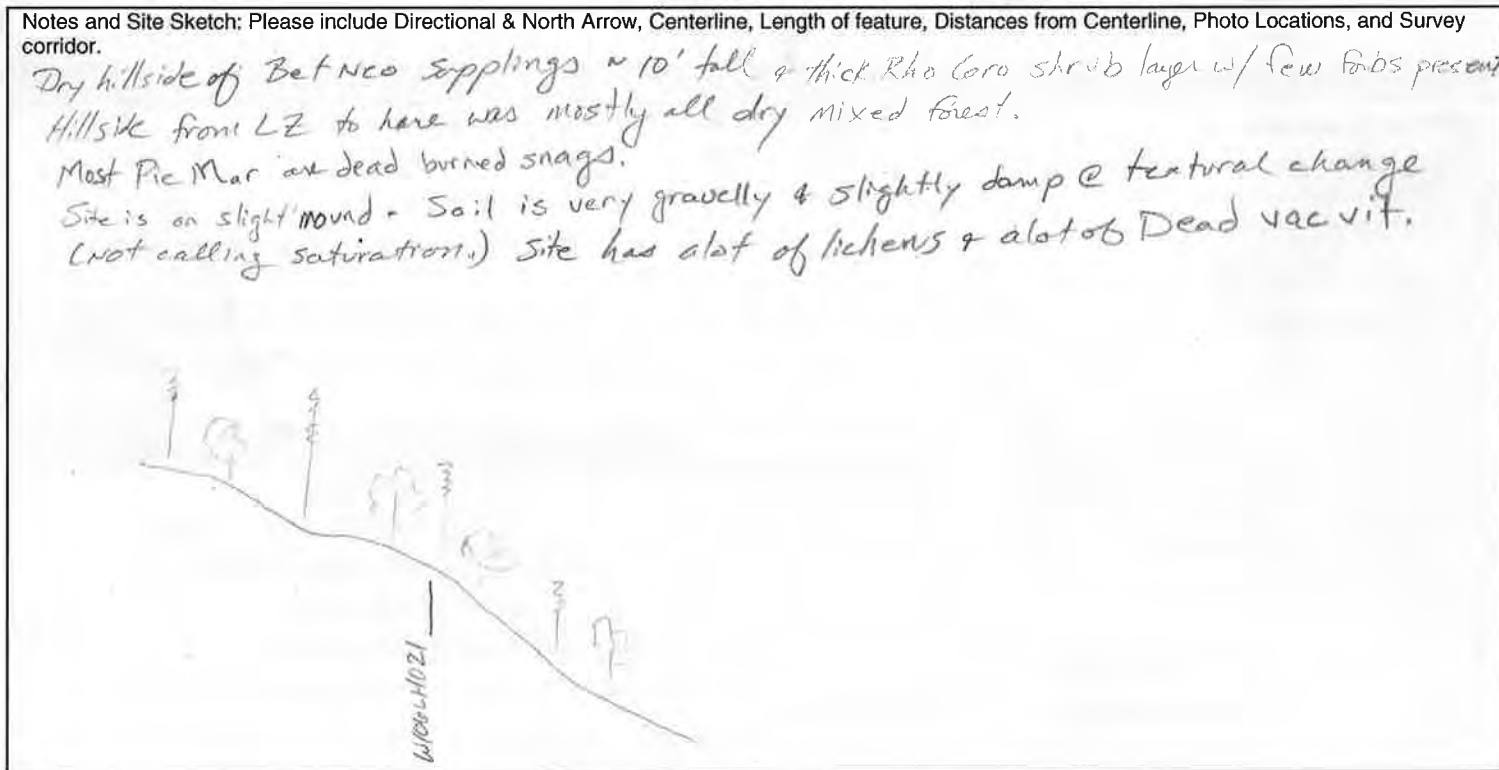 Notes and Site Sketch: Please include Directional & North Arrow, Centerline, Length of feature, Distances from Centerline, Photo Locations, and Survey
corridor.
Dry hillside of Bet Neo Sapplings ~ 10' tall & thick Rho Gro shrub layer w/ few forbs present
Hillside from LZ to here was mostly all dry mixed forest.
Most Pic Mar are dead burned snags.
Site is on slight mound - Soil is very gravelly & slightly damp @ textural change
(not calling saturation.) Site has alot of lichens & alot of Dead vac vit.